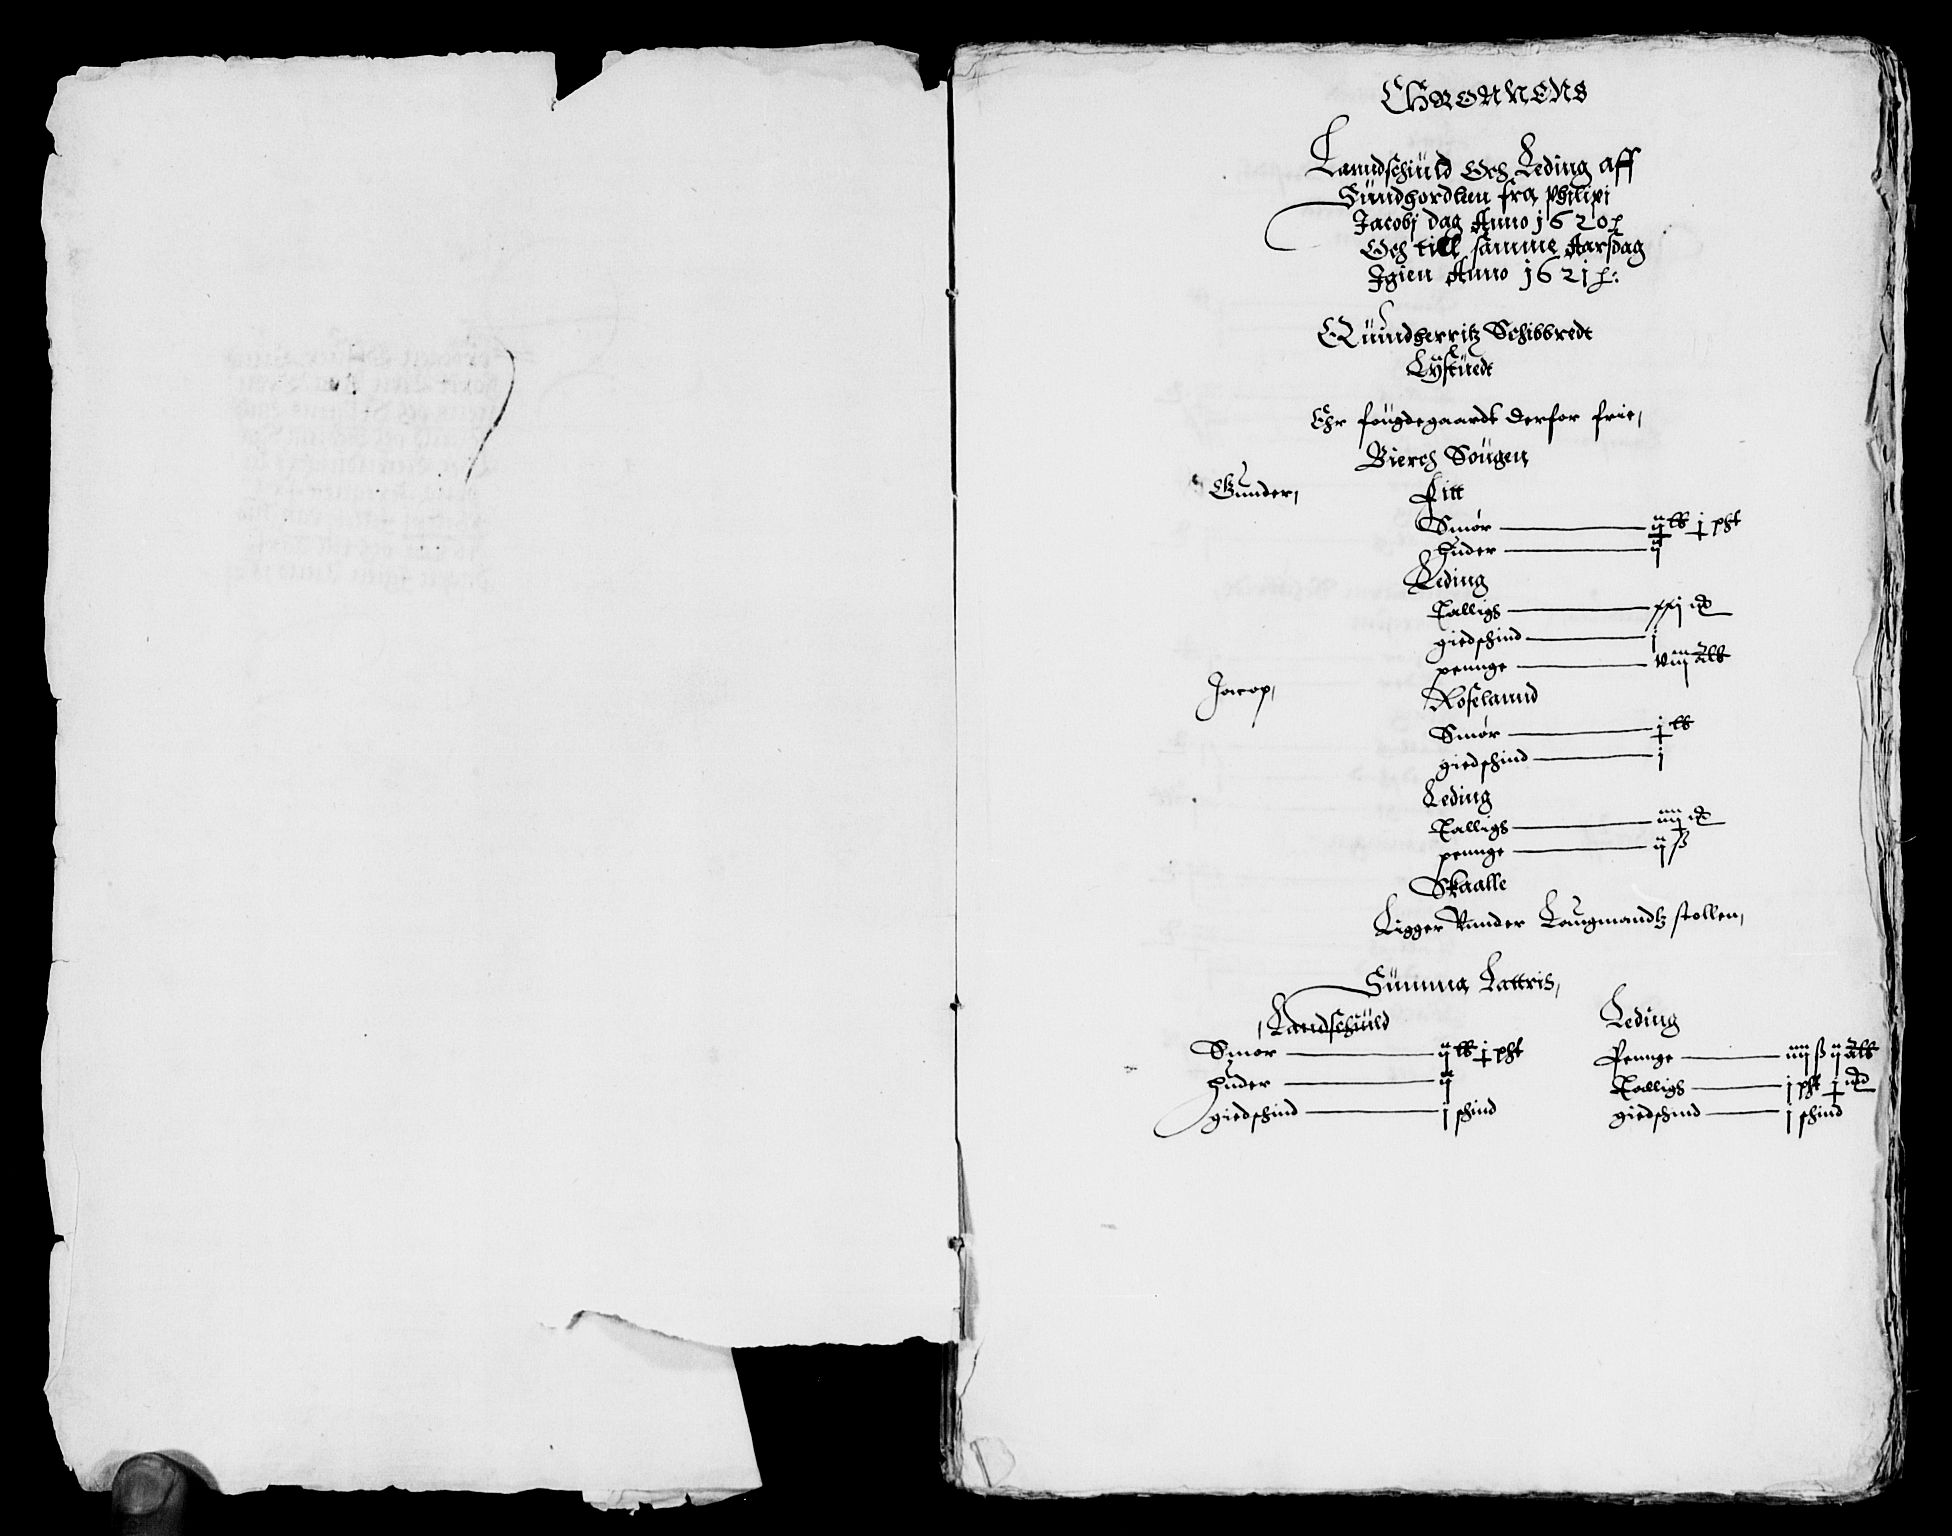 Chronnens
Lanndschuld Och Leding aff
Sundhordlen fra philipi
Jacobj dag Anno 1620
Och till samme Aarsdag
Jgien Anno 1621
Quindherritz Schibbrede
Lystuedt
Ehr fougdegaardt derfor frie,
Bierch Sougen
Gunder, Fitt
Smør — ij lb j pht
Huder — ij
Leding
Talligh — xxj
giedschind — j
pennge — viij alb
Jacop, Roselannd
Smør — j lb
giedschind — j
Leding
Talligh — iiij
pennge — ij ß
Skaalle
Ligger Unnder Laugmandtz stollen,
Summa Lattris,
Landschuld
Smør — ij lb j pht
huder — ij
giedschind — j schind
Leding
Pennge — iiij ß ij alb
Talligh — j pht j
giedschind — j schind